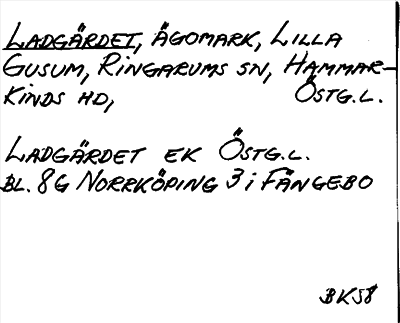 LADGÄRDET, ÄGOMARK, LILLA
GUSUM, RINGARUMS SN, HAMMAR-
KINDS HD, ÖSTG.L.
LADGÄRDET EK ÖSTG.L.
BL. 8G NORRKÖPING 3 i FÄNGEBO
BK58